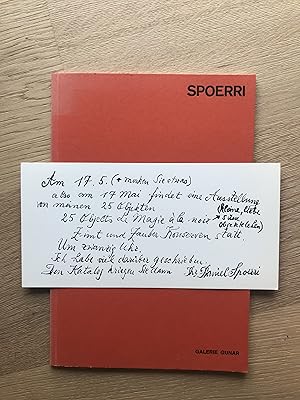 SPOERRI
Am 17. 5. (+ merken Sie etwas)
also am 17 Mai findet eine Ausstellung
von meinen 25 Objekten (kleine, liebe
25 Objects de Magie à la noix
Objektleien)
Zimt und Zauber Konserven statt.
Um zwanzig Uhr.
Ich habe viel darüber geschrieben.
Den Katalog kriegen Sie dann Ihr Daniel Spoerri
GALERIE GUNAR